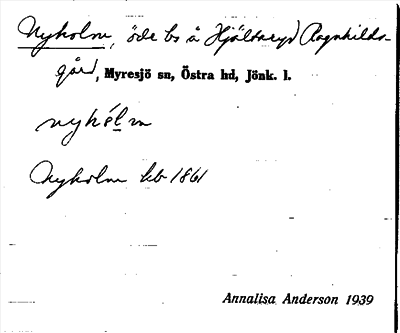 Nyholm, öde bs å Hjältaryd Ragnhilds-
gård, Myresjö sn, Östra hd, Jönk. l.
nyhó̱lm
Nyholm hb 1861
Annalisa Anderson 1939